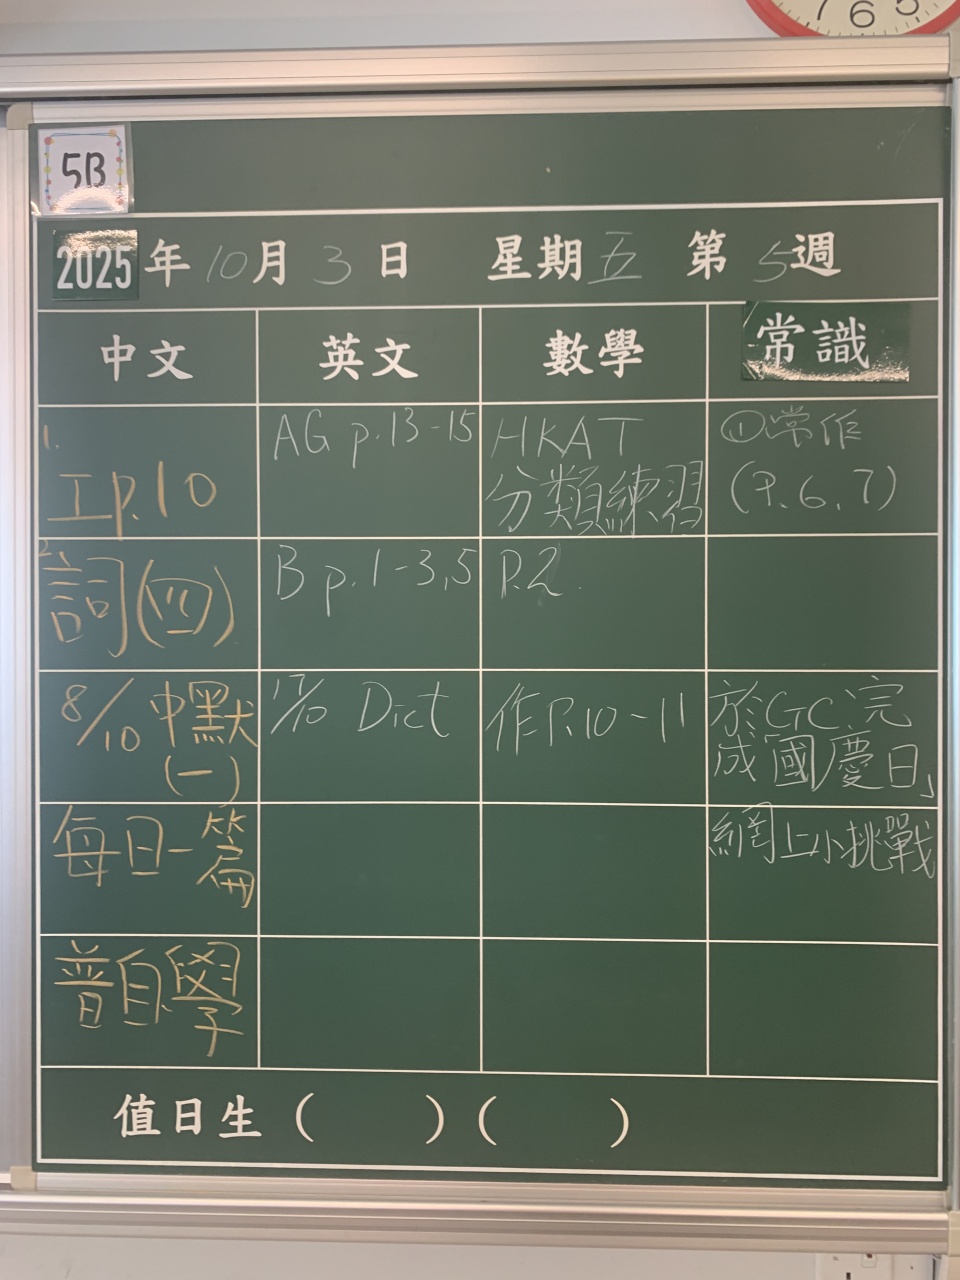 7 6 5
5B
2025年10月3日 星期五 第5週
中文 英文 數學 常識
1. AG p.13-15 HKAT ①常作
工p.10 分類練習 (P.6,7)
2. 詞(四) B p.1-3,5 P.2
8/10 中默 17/10 Dict 作P.10-11 於GC完
(一) 成「國慶日」
每日一篇 網上小挑戰
普自學
值日生( )( )